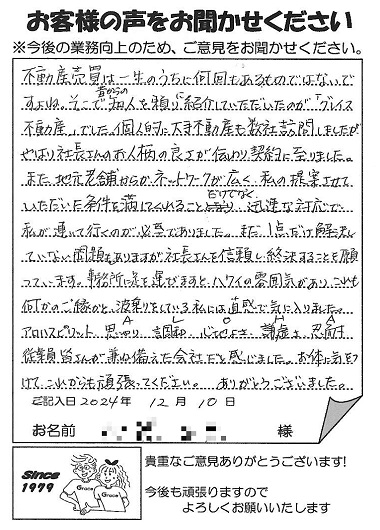 お客様の声をお聞かせください
※今後の業務向上のため、ご意見をお聞かせください。
不動産売買は一生のうちに何回もあるものではないで
すよね。そこで昔からの知人を頼りに紹介していただいたのが「グレイス
不動産」でした。個人的に大手不動産も数社訪問しましたが
やはり社長さんのお人柄の良さが伝わり契約に至りました。
また地元老舗ならではネットワークが広く、私の提案させて
いただいた条件を満してくれるだけでなく迅速な対応で
私が追って行くのが必至でありました。まだ1点だけ解決し
ていない問題もありますが社長さんを信頼し終決することを願
っています。事務所に足を運びますと、ハワイの雰囲気があり、これも
何かのご縁かと、波乗りをしている私には直感で気に入りました。
A L O H A
アロハスピリット 思やり、調和、心地よさ、謙虚さ、忍耐
従業員皆さんが兼ね備えた会社だと感じました。お体に気をつ
けて、これからも頑張ってください。ありがとうございました。
ご記入日 2024年 12月 10日
お名前 様
Since
1979
Grace
Grace
貴重なご意見ありがとうございます!
今後も頑張りますので
よろしくお願いいたします